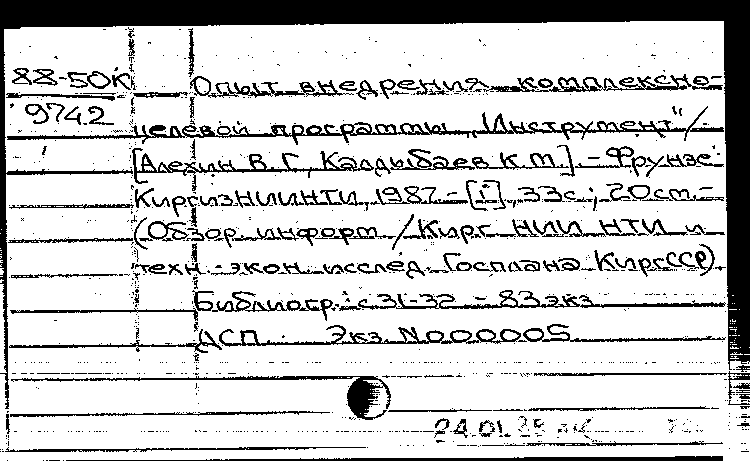 88-50К Опыт внедрения комплексно-
9742
целевой программы „Инструмент"/-
[Алехин В.Г., Калдыбаев К.М.]. - Фрунзе:
КиргизНИИНТИ, 1987. - [1], 33с.; 20см. -
(Обзор. информ. / Кирг. НИИ НТИ и
техн.-экон. исслед. Госплана КиргССР).
Библиогр.: с.31-32 - 83 экз.
ДСП. Экз. N000005
24.01.